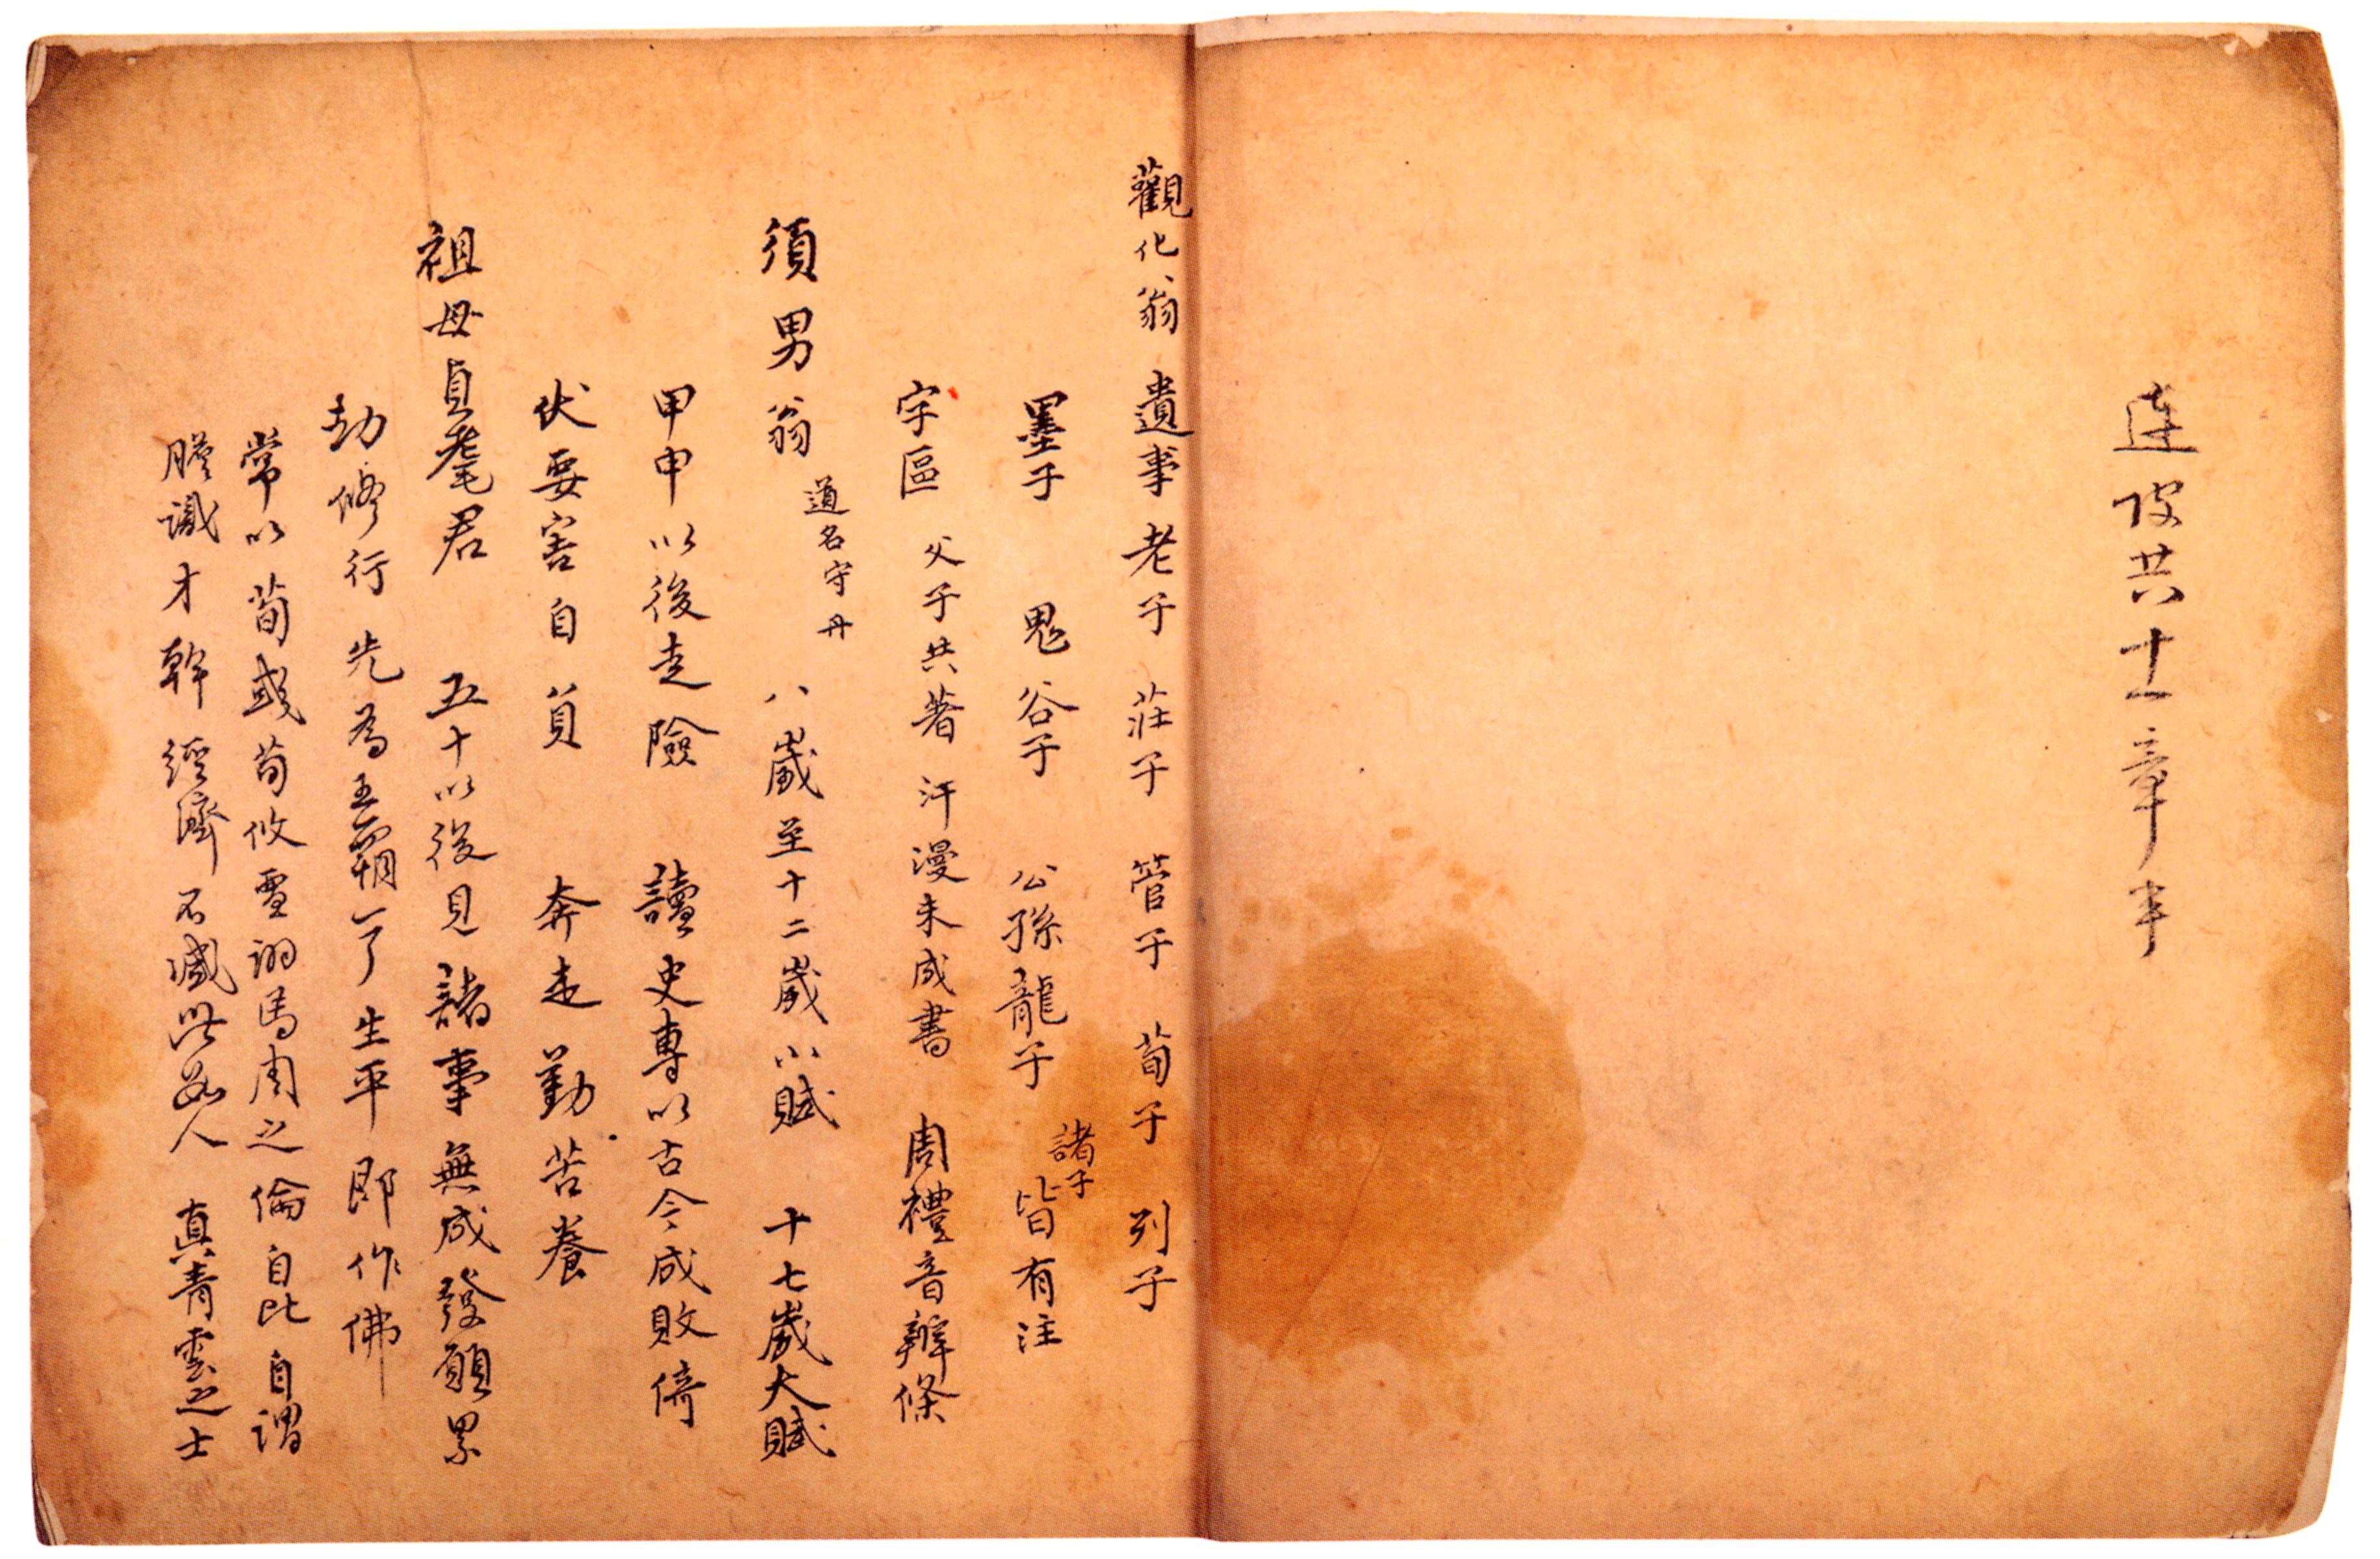 連皮共十一章半
觀化翁遺事老子 莊子 管子 荀子 列子
墨子 鬼谷子 公孫龍子 諸子皆有注
字區 父子共著汗漫未成書 周禮音辨條
須男翁 道名守丹 八歲至十二歲小賦 十七歲大賦
甲申以後走險 讀史專以古今成敗倚
伏要害自負 奔走勤苦養
祖母貞髦君 五十以後見諸事無成發願累
劫修行先為王霸了生平即作佛
常以荀彧荀攸 馬周之倫自比自謂
膽識才幹經濟不減此數人 真青雲之士